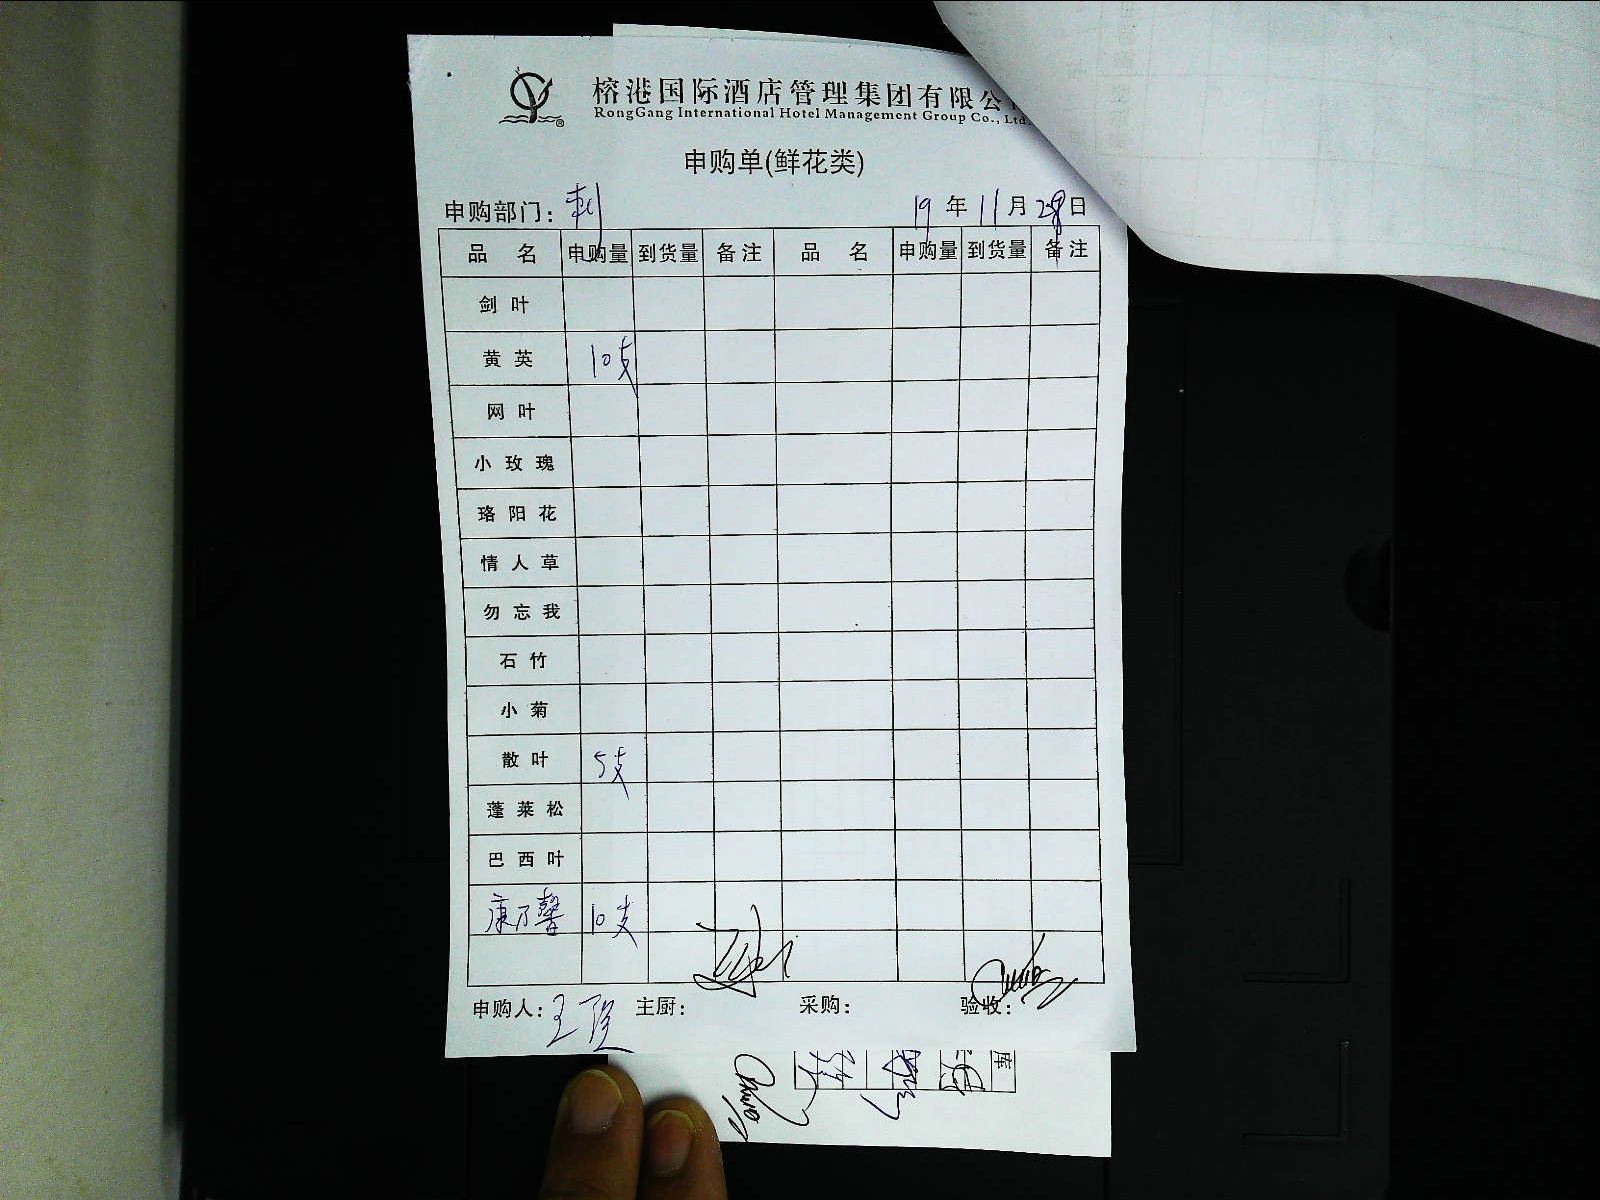 榕港国际酒店管理集团有限公
RongGang International Hotel Management Group Co., Ltd
申购单(鲜花类)
申购部门: 刺 19年11月28日
品名 申购量 到货量 备注 品名 申购量 到货量 备注
剑叶
黄英 10支
网叶
小玫瑰
珞阳花
情人草
勿忘我
石竹
小菊
散叶 5支
蓬莱松
巴西叶
康乃馨 10支
申购人: 王 主厨: 采购: 验收:
库